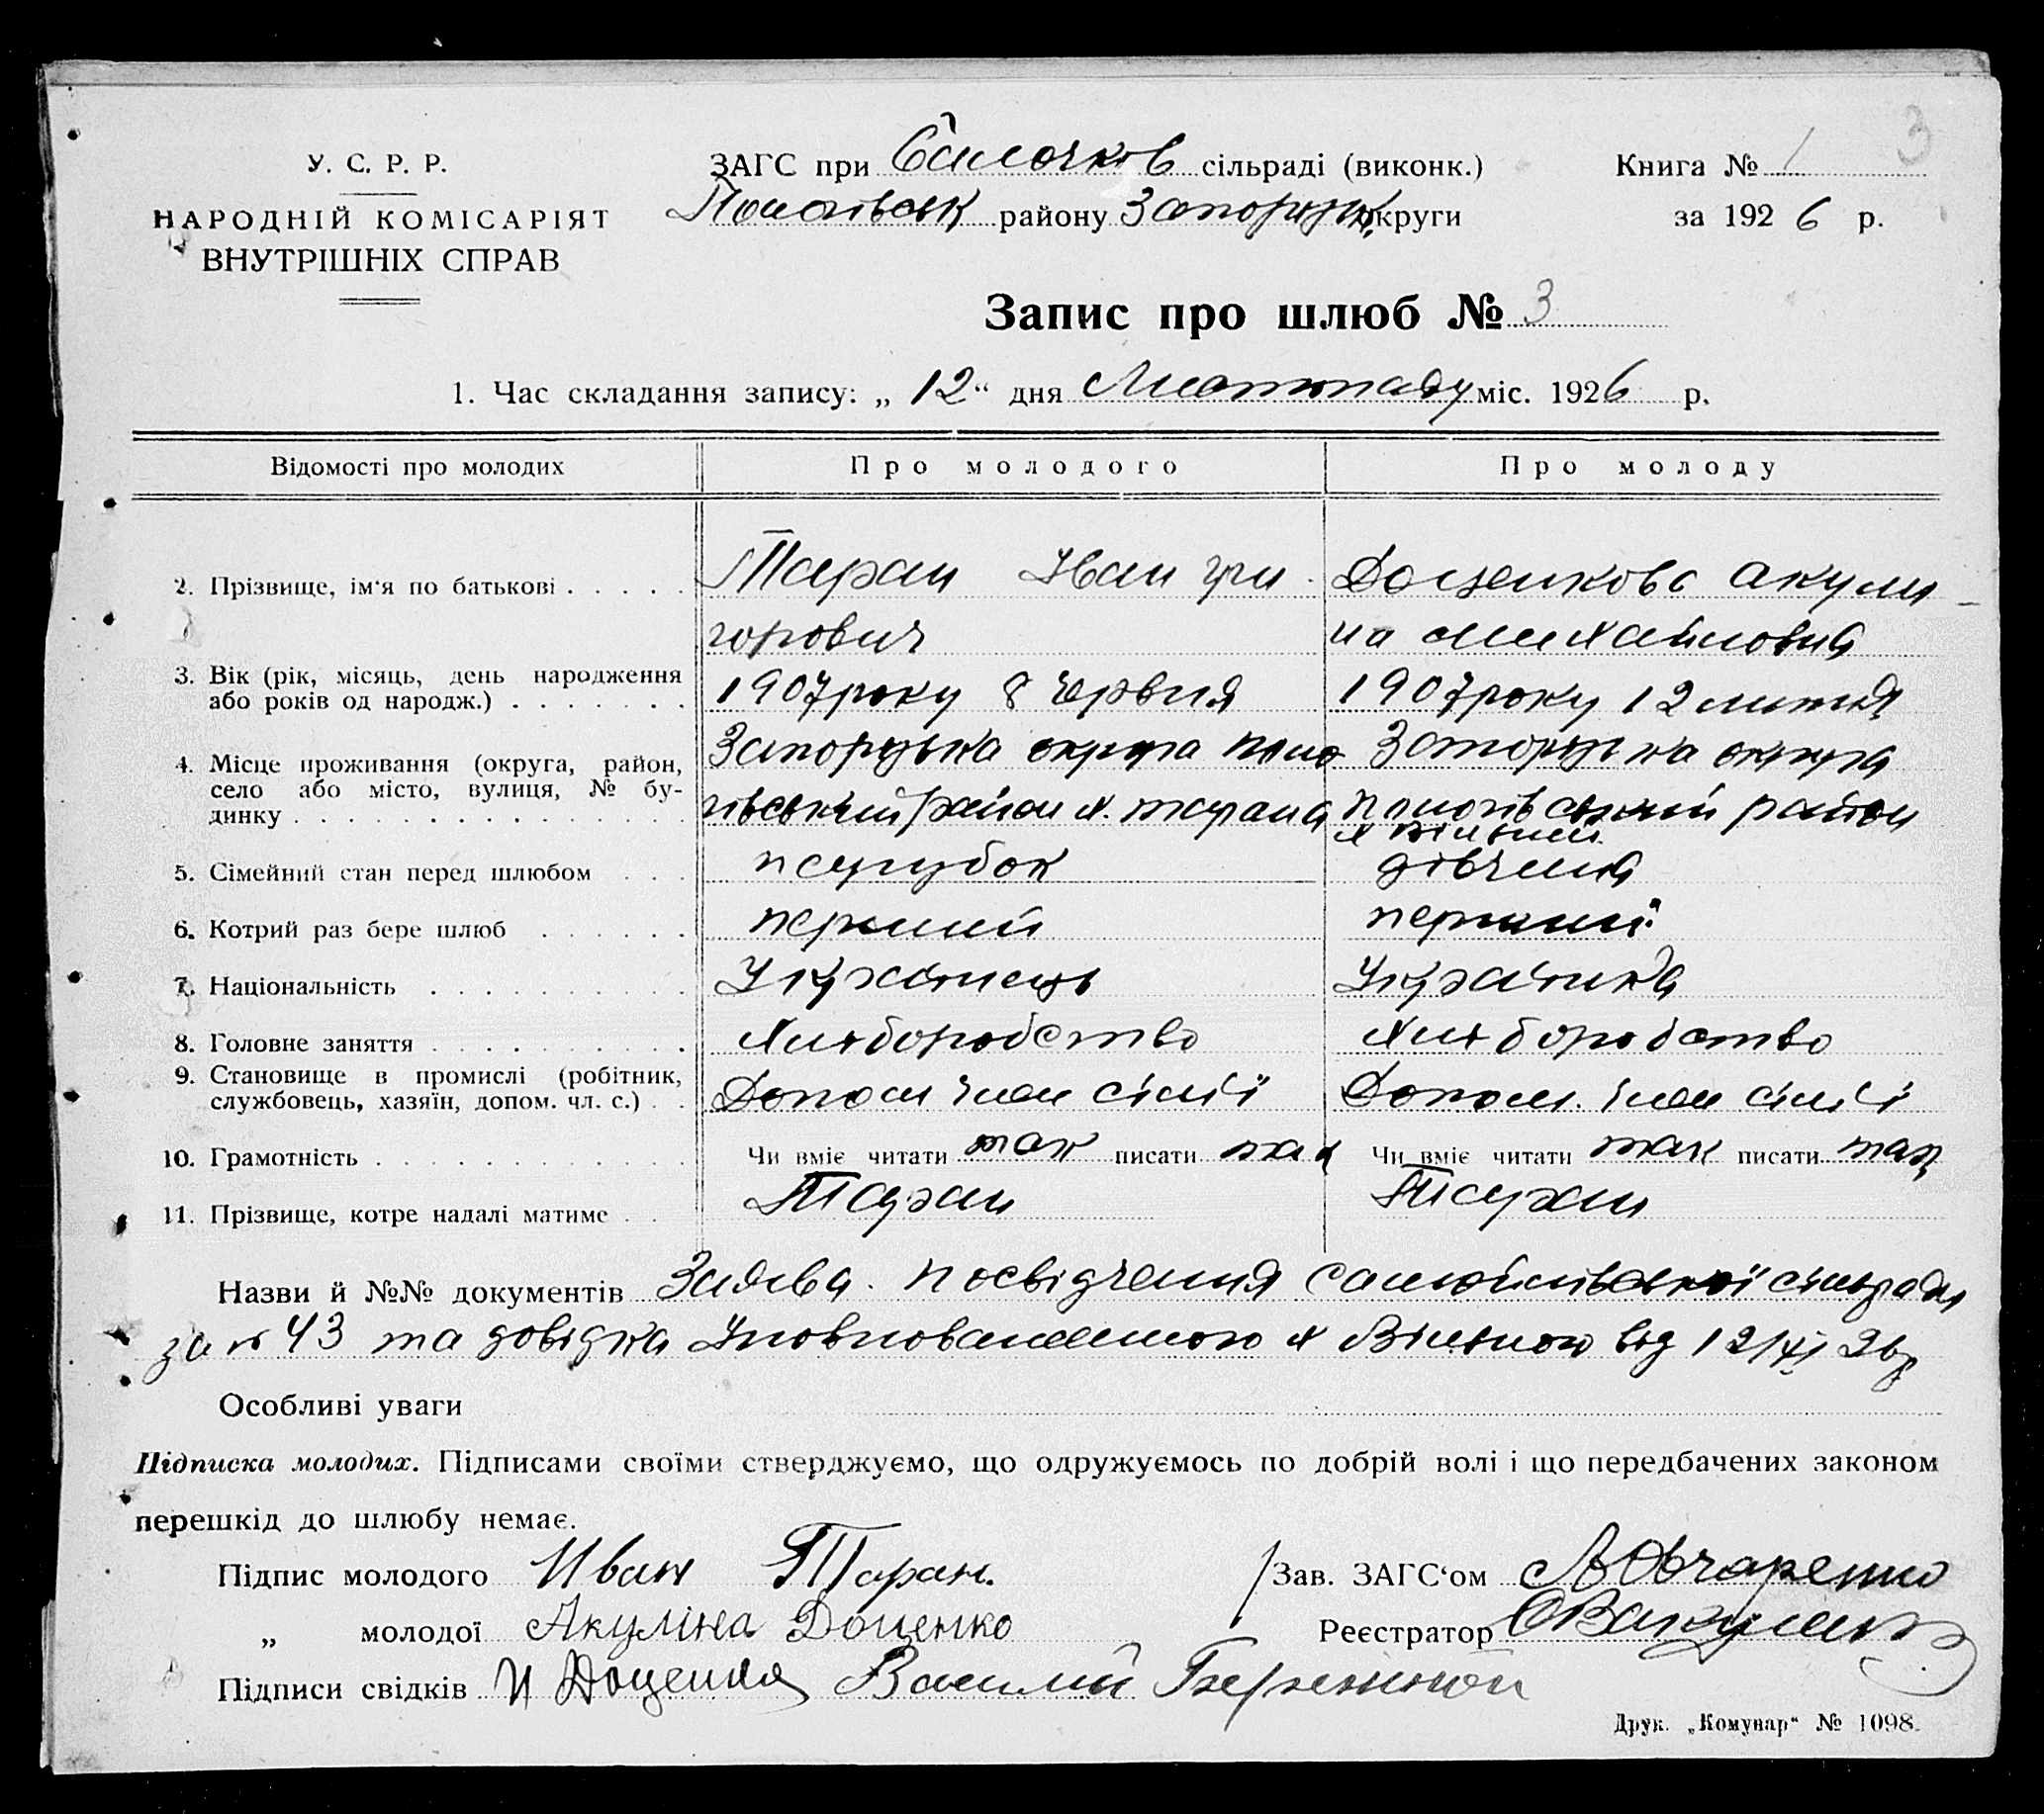 3
У. С. Р. Р.
НАРОДНІЙ КОМІСАРІЯТ
ВНУТРІШНІХ СПРАВ
ЗАГС при сільраді (виконк.)
Пологівськ району Запорізьк. округи
Книга № 1
за 1926 р.
Запис про шлюб № 3
1. Час складання запису: „ 12 “ дня Листопаду міс. 1926 р.
Відомості про молодих Про молодого Про молоду
2. Прізвище, ім‘я по батькові Таран Іван Гри- Доценкова Акули-
горович на Михайловна
3. Вік (рік, місяць, день народження 1907 року 8 червня 1907 року 12 липня
або років од народж.)
4. Місце проживання (округа, район, Запорізька округа Поло Запорізька округа
село або місто, вулиця, № бу- гівський район х. Тарана Пологівський район
динку х Вільний
5. Сімейний стан перед шлюбом парубок дівчина
6. Котрий раз бере шлюб перший перший
7. Національність Українець Українка
8. Головне заняття Хліборобство Хліборобство
9. Становище в промислі (робітник, Допом член сім'ї Допом. член сім'ї
службовець, хазяїн, допом. чл. с.)
10. Грамотність Чи вміє читати так писати так Чи вміє читати так писати так
11. Прізвище, котре надалі матиме Таран Таран
Назви й №№ документів Заява. посвідчення сільради
за № 43 та довідка Уповноваженного х Вільного від 12/XI 26 р
Особливі уваги
Підписка молодих. Підписами своїми стверджуємо, що одружуємось по добрій волі і що передбачених законом
перешкід до шлюбу немає.
Підпис молодого Иван Таран. Зав. ЗАГС‘ом Овчаренко
„ молодої Акуліна Доценко Реєстратор
Підписи свідків И Доценко Василий Бережной
Друк. „Комунар“ № 1098.